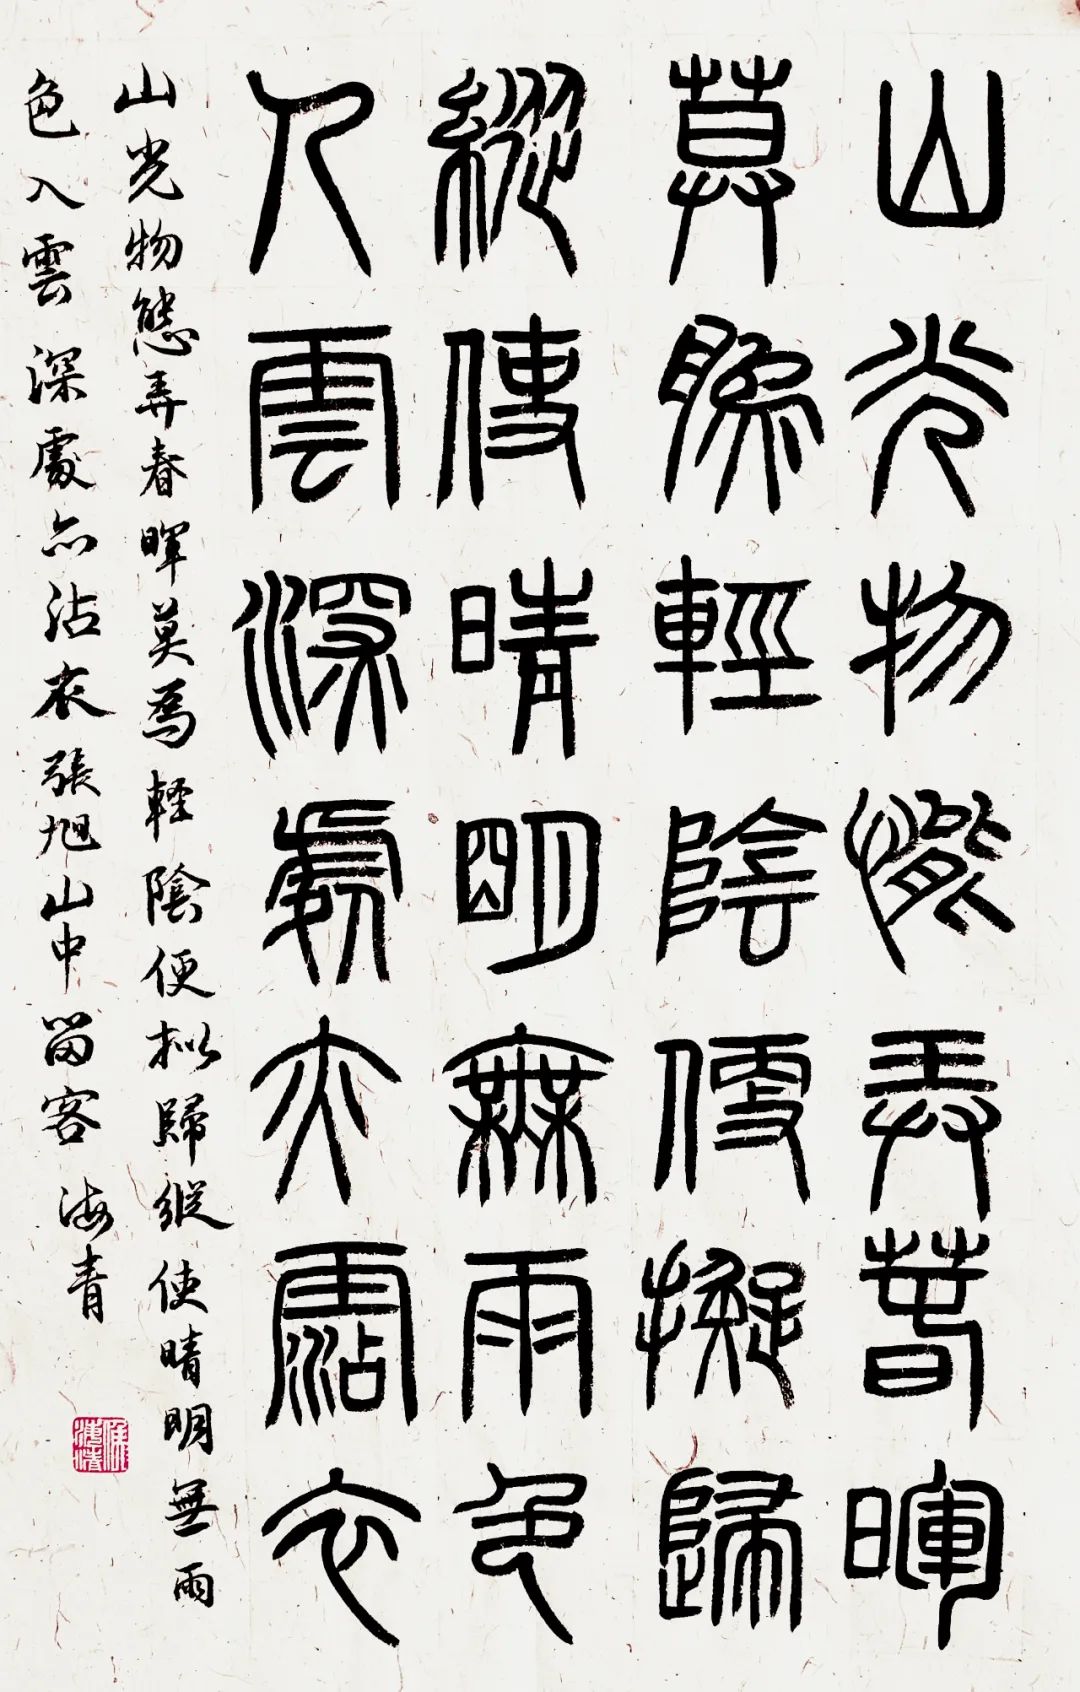 山光物態弄春暉
莫為輕陰便擬歸
縱使晴明無雨色
入雲深處亦霑衣
山光物態弄春暉莫為軽陰便擬歸縱使晴明無雨
色入雲深處亦沾衣張旭山中留客海青